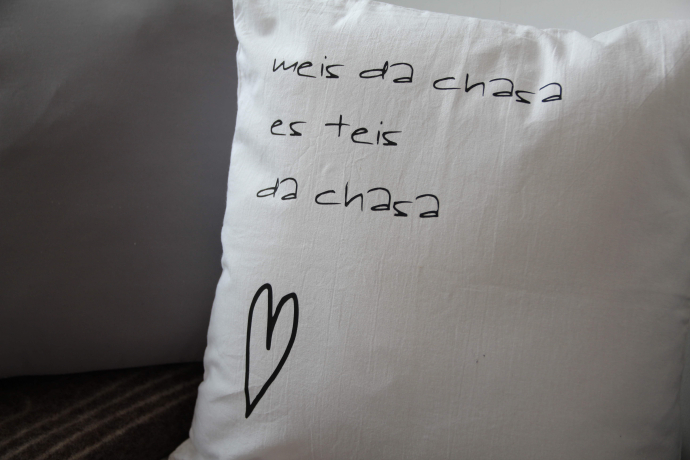 meis da chasa
es teis
da chasa